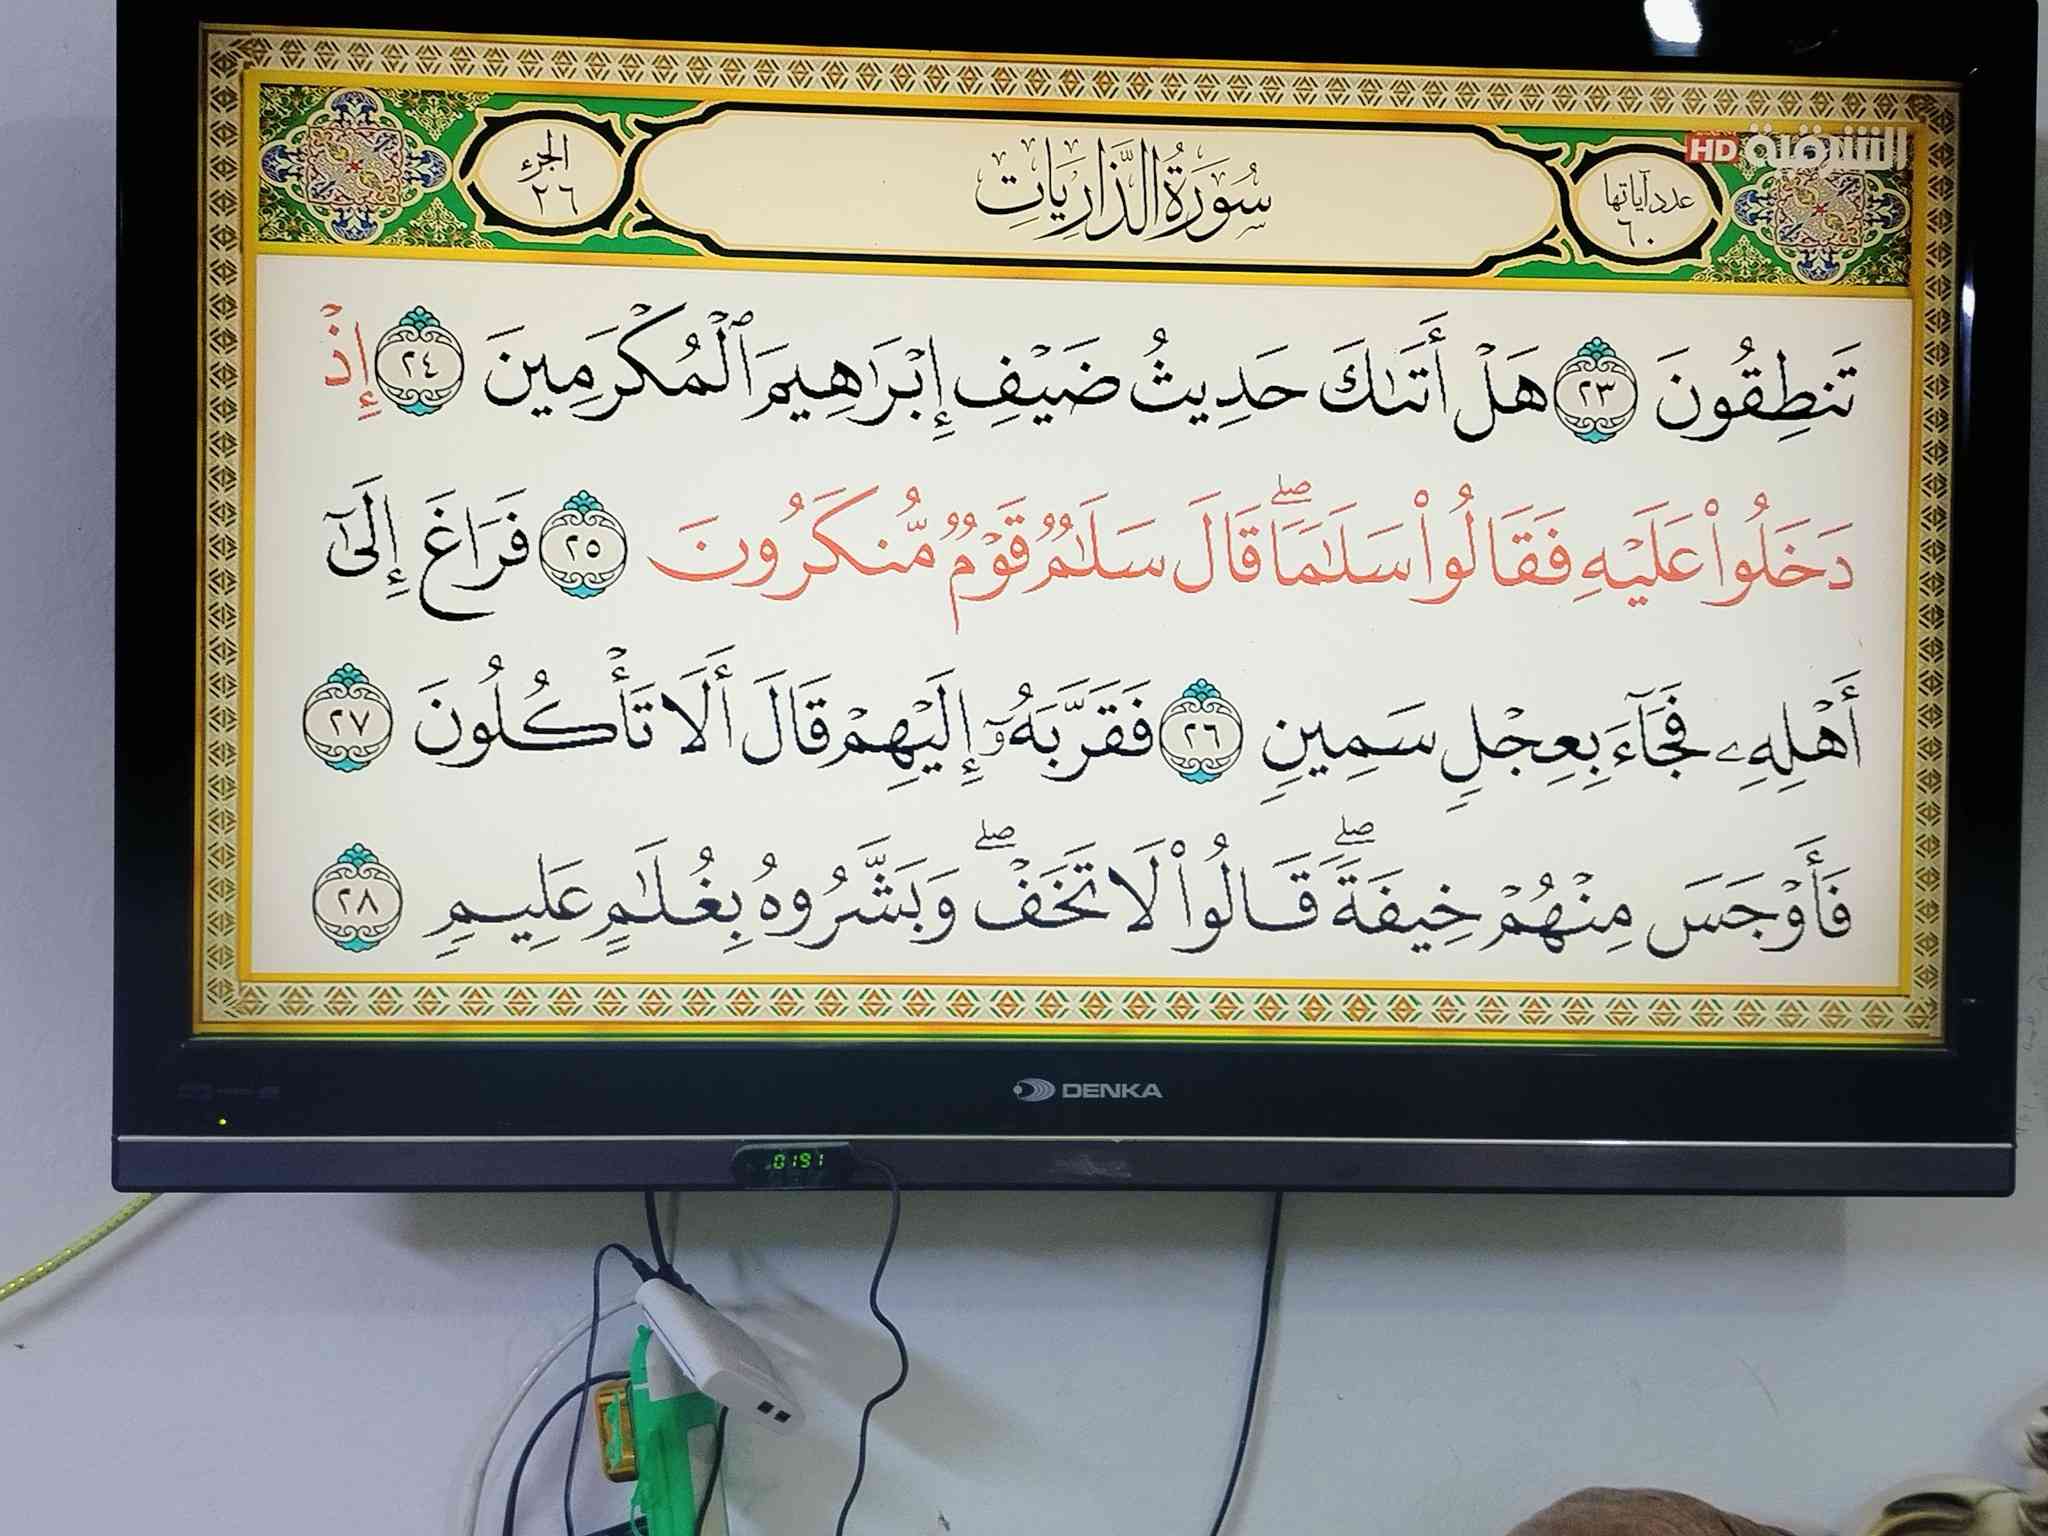 الشرقية HD
عدد آياتها ٦٠
سُورَةُ الذَّارِيَاتِ
الجزء ٢٦
تَنطِقُونَ ٢٣ هَلْ أَتَىٰكَ حَدِيثُ ضَيْفِ إِبْرَٰهِيمَ ٱلْمُكْرَمِينَ ٢٤ إِذْ
دَخَلُوا۟ عَلَيْهِ فَقَالُوا۟ سَلَٰمًا ۖ قَالَ سَلَٰمٌ قَوْمٌ مُّنكَرُونَ ٢٥ فَرَاغَ إِلَىٰٓ
أَهْلِهِۦ فَجَآءَ بِعِجْلٍ سَمِينٍ ٢٦ فَقَرَّبَهُۥٓ إِلَيْهِمْ قَالَ أَلَا تَأْكُلُونَ ٢٧
فَأَوْجَسَ مِنْهُمْ خِيفَةً ۖ قَالُوا۟ لَا تَخَفْ ۖ وَبَشَّرُوهُ بِغُلَٰمٍ عَلِيمٍ ٢٨
DENKA
0191